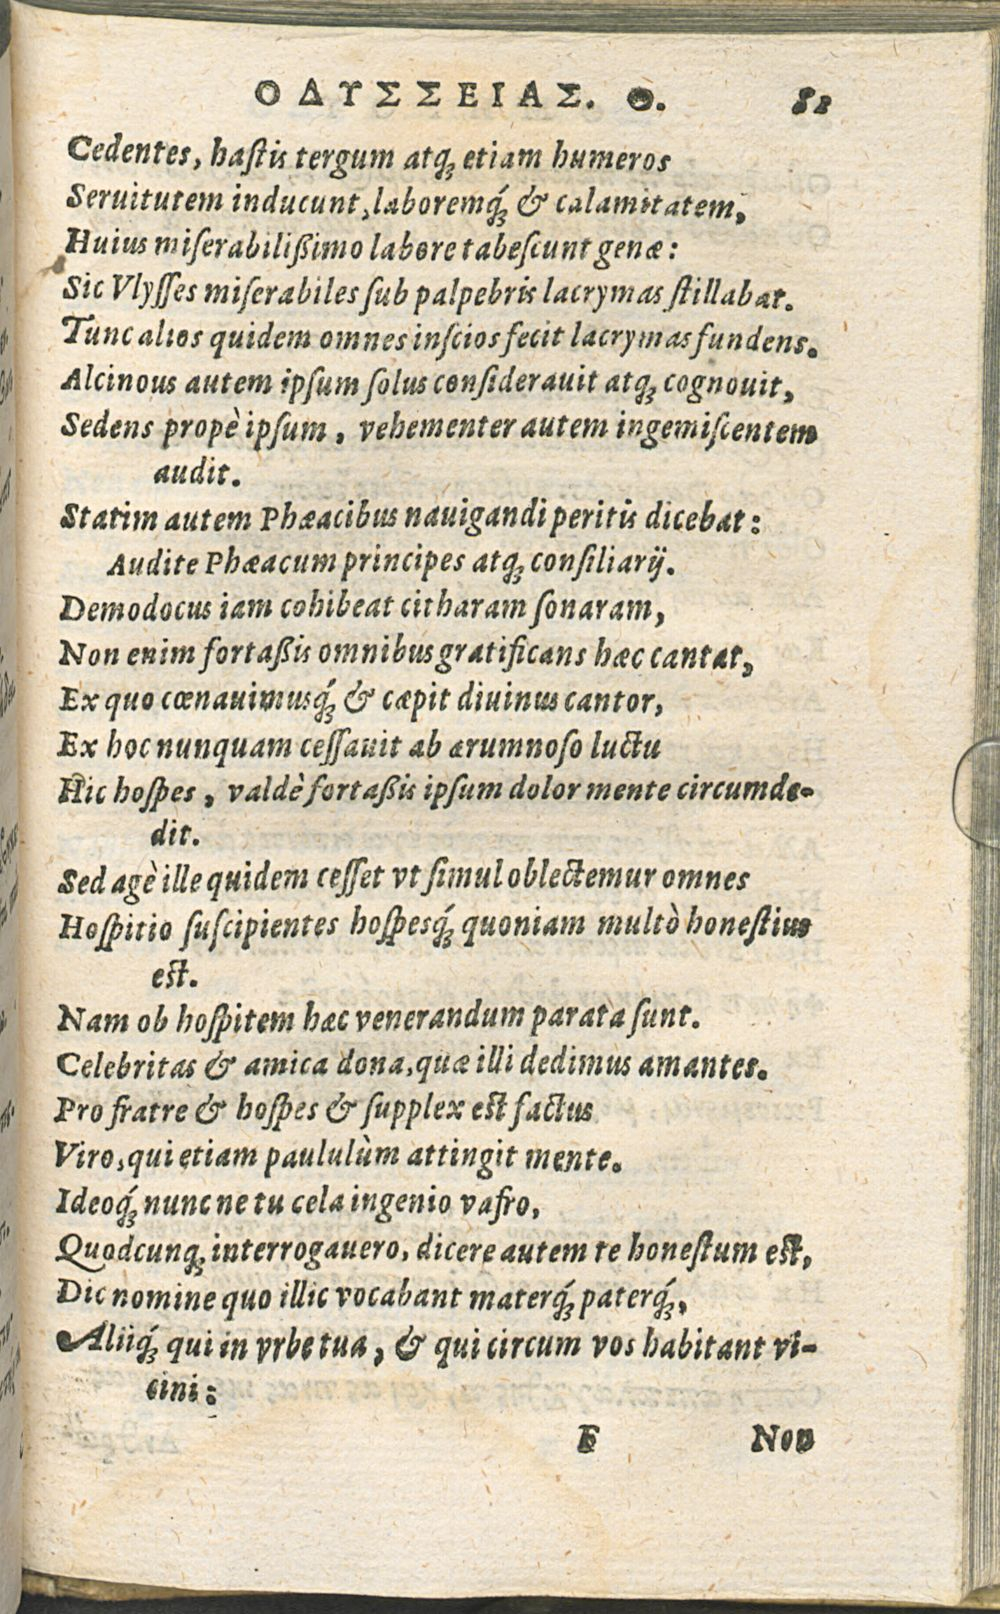 ΟΔΥΣΣΕΙΑΣ. Θ. 81
Cedentes, haſtis tergum atq; etiam humeros
Seruitutem inducunt, laboremq́; & calamitatem,
Huius miſerabilißimo labore tabeſcunt genæ:
Sic Vlyſſes miſerabiles ſub palpebris lacrymas ſtillabat.
Tunc alios quidem omnes inſcios fecit lacrymas fundens.
Alcinous autem ipſum ſolus conſiderauit atq; cognouit,
Sedens propè ipſum, vehementer autem ingemiſcentem
audit.
Statim autem Phæacibus nauigandi peritis dicebat:
Audite Phæacum principes atq; conſiliarij.
Demodocus iam cohibeat citharam ſonaram,
Non enim fortaßis omnibus gratificans hæc cantat,
Ex quo cœnauimusq́; & cæpit diuinus cantor,
Ex hoc nunquam ceſſauit ab ærumnoſo luctu
Hic hoſpes, valdè fortaßis ipſum dolor mente circumde-
dit.
Sed agè ille quidem ceſſet vt ſimul oblectemur omnes
Hoſpitio ſuſcipientes hoſpesq́; quoniam multò honeſtius
eſt.
Nam ob hoſpitem hæc venerandum parata ſunt.
Celebritas & amica dona, quæ illi dedimus amantes.
Pro fratre & hoſpes & ſupplex eſt factus
Viro, qui etiam paululùm attingit mente.
Ideoq́; nunc ne tu cela ingenio vafro,
Quodcunq; interrogauero, dicere autem te honeſtum eſt,
Dic nomine quo illic vocabant materq́; paterq́;,
Aliiq́; qui in vrbe tua, & qui circum vos habitant vi-
cini:
F Non